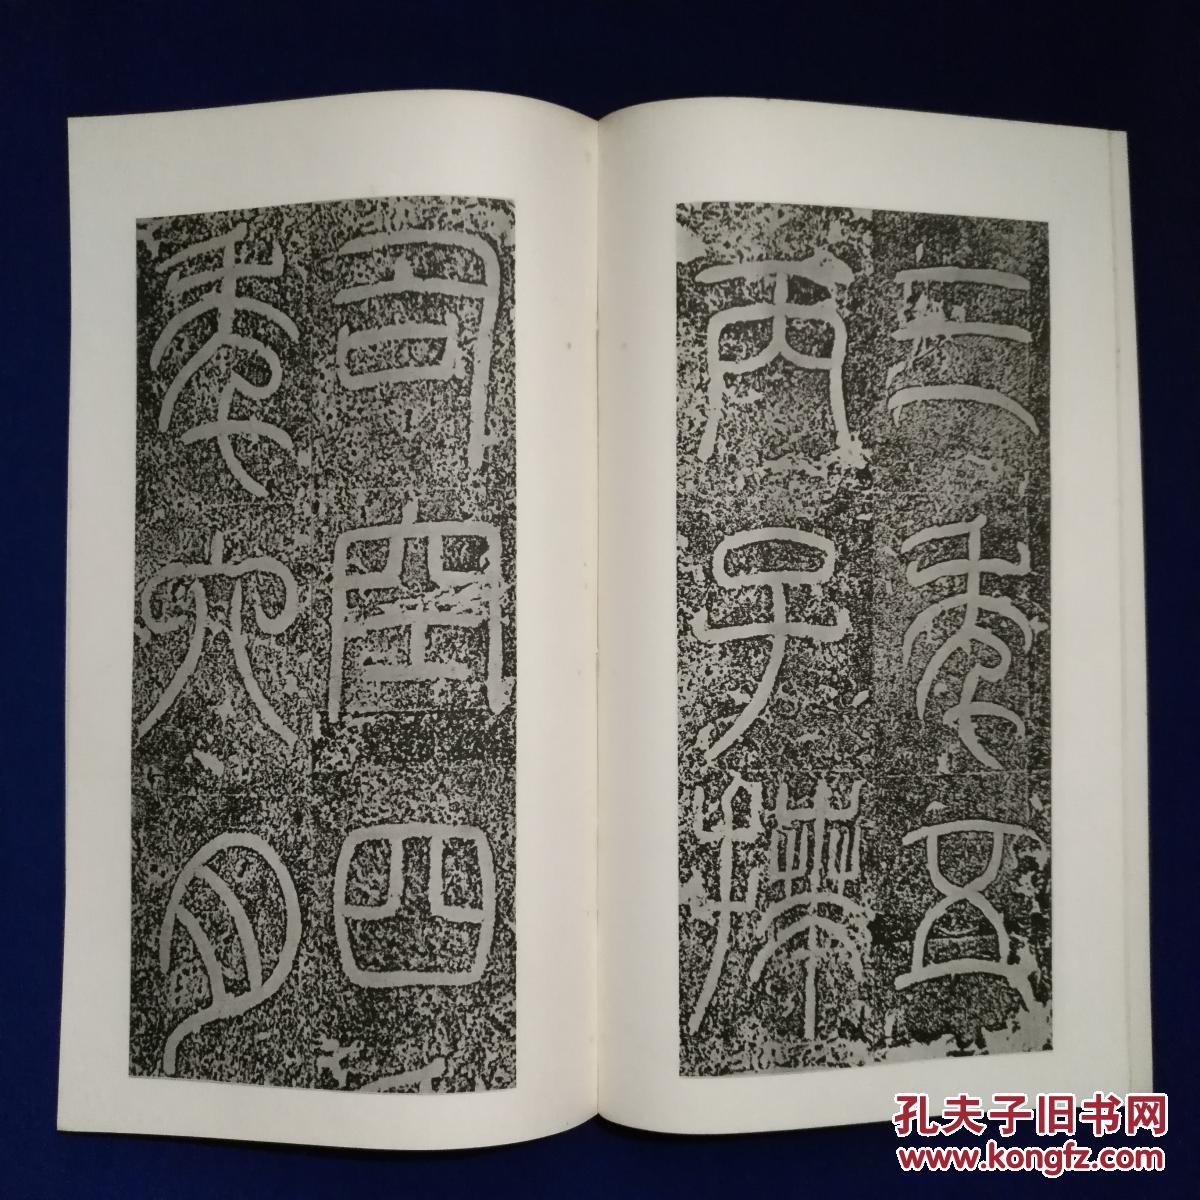 三年五
丙子拜
司空四
年六月
孔夫子旧书网
www.kongfz.com